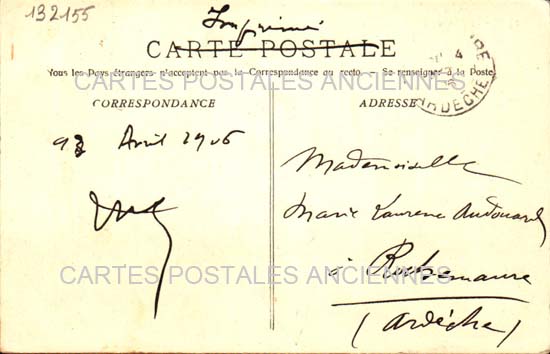 132155
Imprimé
CARTE POSTALE
Tous les Pays étrangers n'acceptent pas la Correspondance au recto. — Se renseigner à la Poste.
CARTES POSTALES ANCIENNES
CORRESPONDANCE
ADRESSE
ARDÈCHE
Avril 1906
Mademoiselle
Marie Laurence Audouard
à Rochemaure
(Ardèche)
CARTES POSTALES ANCIENNES